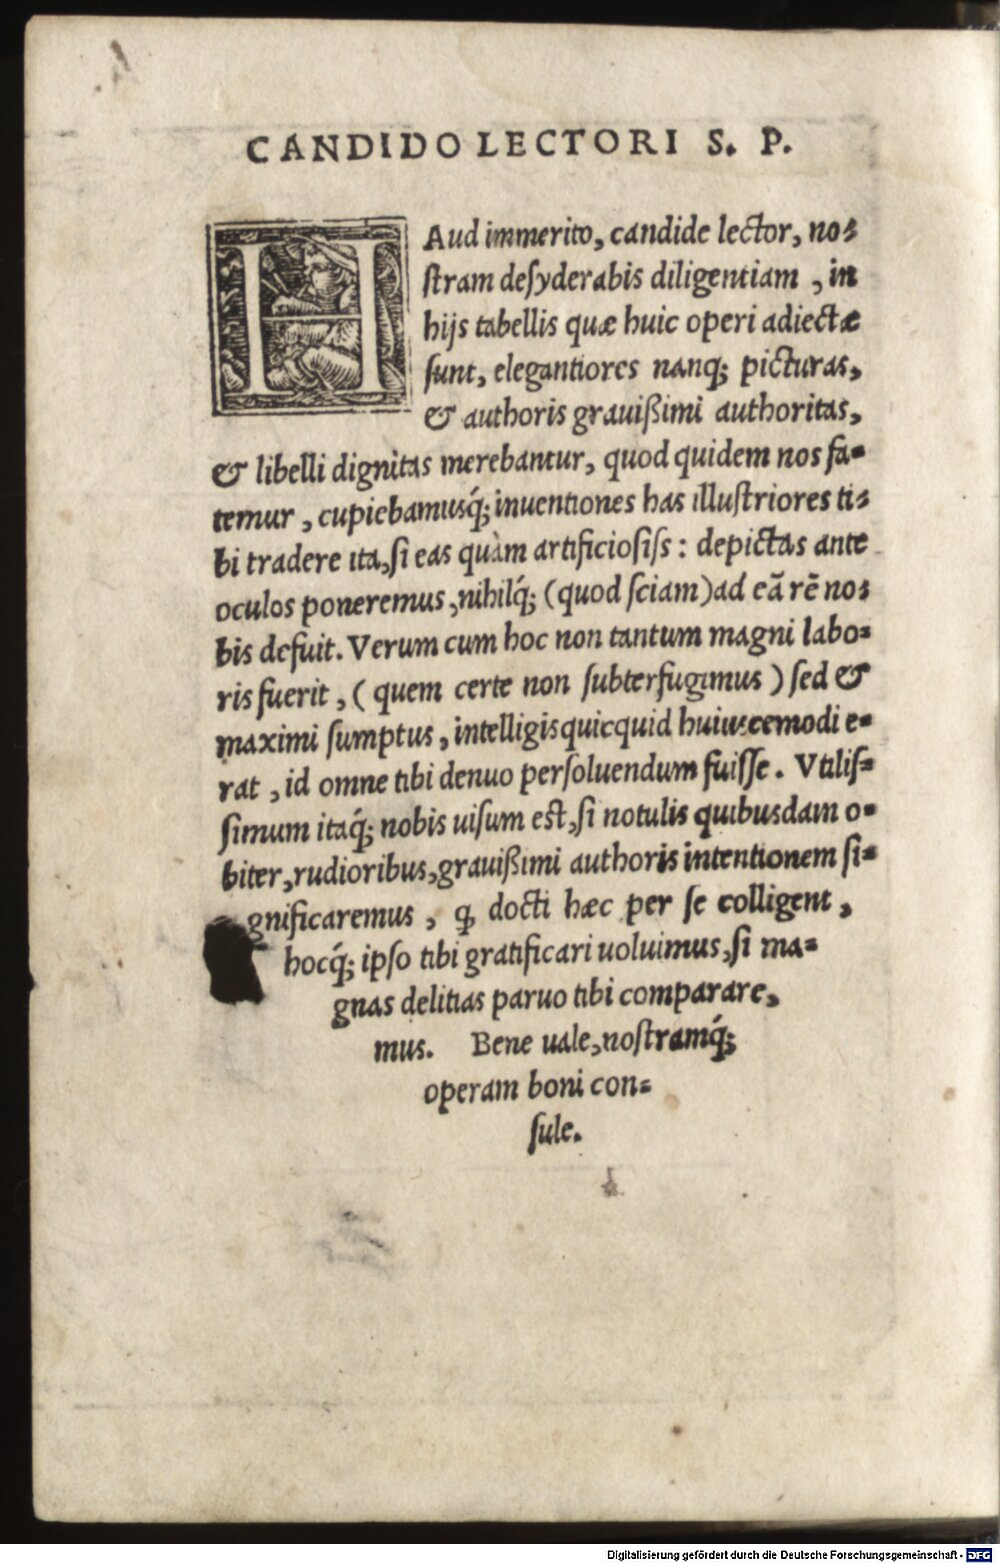 CANDIDO LECTORI S. P.
HAud immerito, candide lector, no⸗
ſtram deſyderabis diligentiam, in
hijs tabellis quæ huic operi adiectæ
ſunt, elegantiores nanq; picturas,
& authoris grauißimi authoritas,
& libelli dignitas merebantur, quod quidem nos fa⸗
temur, cupiebamusq́; inuentiones has illuſtriores ti⸗
bi tradere ita, ſi eas quàm artificioſiſs: depictas ante
oculos poneremus, nihilq́; (quod ſciam) ad eā rē no⸗
bis defuit. Verum cum hoc non tantum magni labo⸗
ris fuerit, (quem certe non ſubterfugimus) ſed &
maximi ſumptus, intelligis quicquid huiuscemodi e⸗
rat, id omne tibi denuo perſoluendum fuiſſe. Vtiliſ⸗
ſimum itaq́; nobis uiſum eſt, ſi notulis quibusdam o⸗
biter, rudioribus, grauißimi authoris intentionem ſi⸗
gnificaremus, ꝙ docti hæc per ſe colligent,
hocq́; ipſo tibi gratificari uoluimus, ſi ma⸗
gnas delitias paruo tibi comparare,
mus. Bene uale, noſtramq́;
operam boni con⸗
ſule.
Digitalisierung gefördert durch die Deutsche Forschungsgemeinschaft - DFG